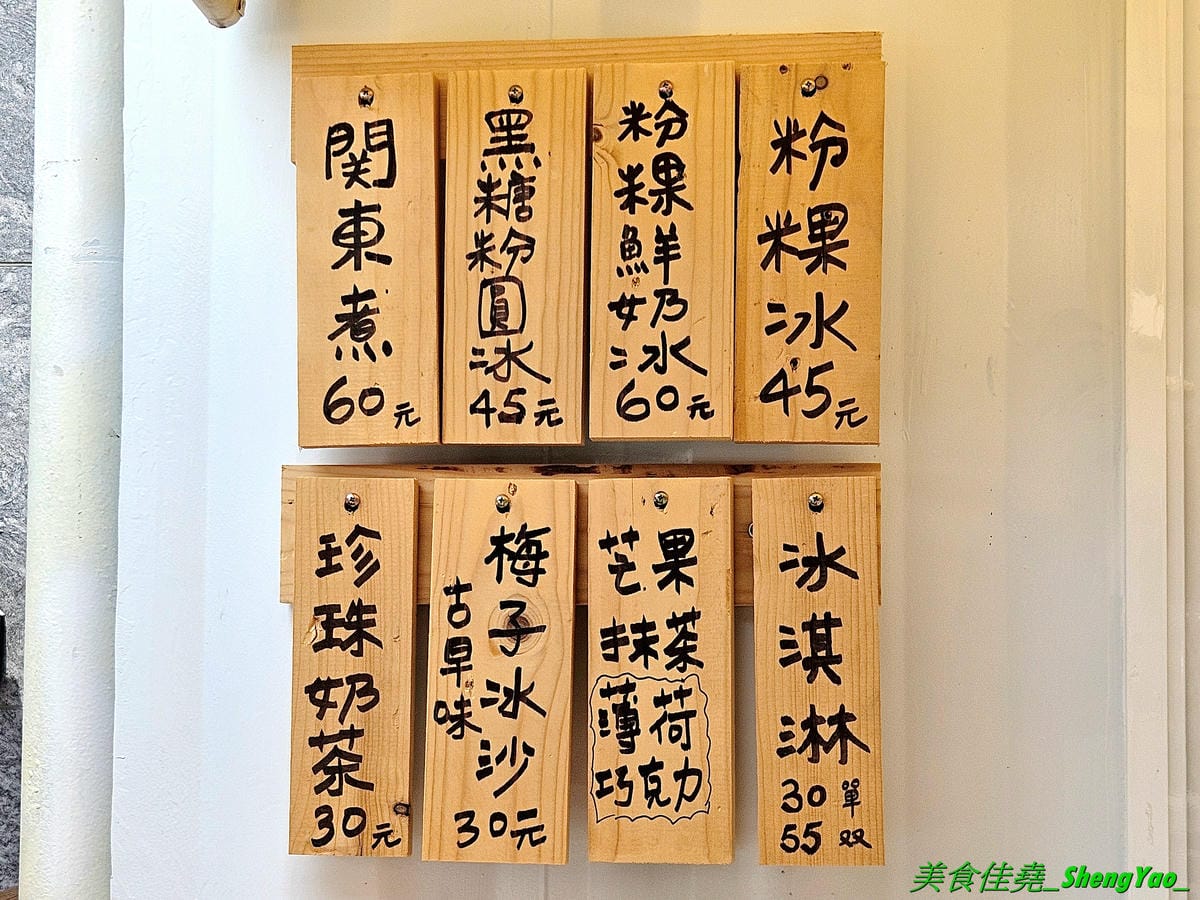 粉粿冰
45元
粉粿鮮奶冰
60元
黑糖粉圓冰
45元
関東煮
60元
冰淇淋
30單
55双
芒果
抹茶
薄荷
巧克力
古早味
梅子冰沙
30元
珍珠奶茶
30元
美食佳堯_ShengYao_